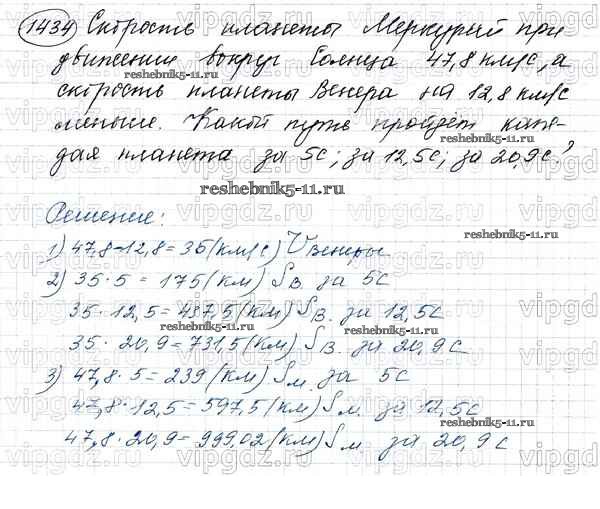 1434 Скорость планеты Меркурий при
движении вокруг Солнца 47,8 км/с, а
reshebnik5-11.ru
скорость планеты Венера на 12,8 км/с
меньше. Какой путь пройдёт каж-
reshebnik5-11.ru
дая планета за 5с; за 12,5с; за 20,9с?
reshebnik5-11.ru
Решение:
1) 47,8-12,8=35(км/с) V Венеры
2) 35·5=175(км) S в. за 5с
35·12,5=437,5(км) S в. за 12,5с
reshebnik5-11.ru
35·20,9=731,5(км) S в. за 20,9с
3) 47,8·5=239(км) S м. за 5с
47,8·12,5=597,5(км) S м. за 12,5с
reshebnik5-11.ru
47,8·20,9=999,02(км) S м за 20,9с